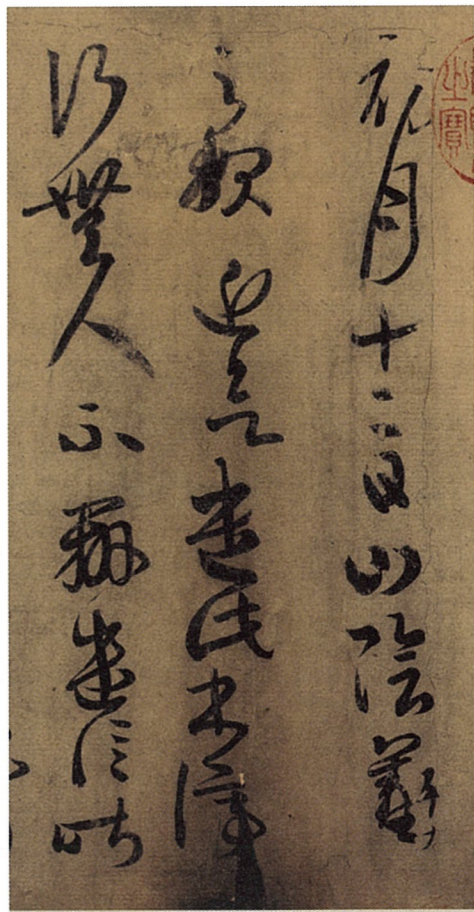 之寶
初月十二日山陰羲
之報近欲遣此書停
行無人不辦遣信昨